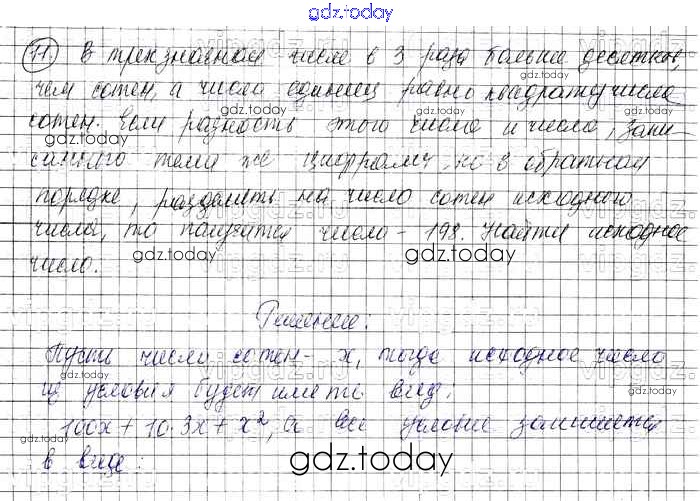 gdz.today
11. В трехзначном числе в 3 раза больше десятков,
чем сотен, а число единиц равно квадрату числа
сотен. Если разность этого числа и числа, запи-
санного теми же цифрами, но в обратном
порядке, разделить на число сотен исходного
числа, то получится число - 198. Найти исходное
число.
Решение:
Пусть число сотен - x, тогда исходное число
из условия будет иметь вид:
100x + 10·3x + x², а все условие запишется
в виде:
gdz.today